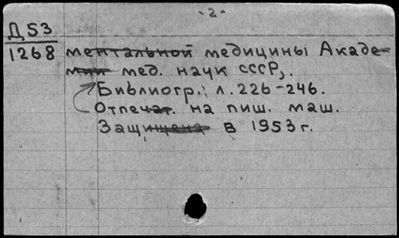 - 2 -
Д53
1268 ментальной медицины Акаде-
мии мед. наук СССР,.
Библиогр.: л. 226-246.
Отпечат. на пиш. маш.
Защищена в 1953 г.